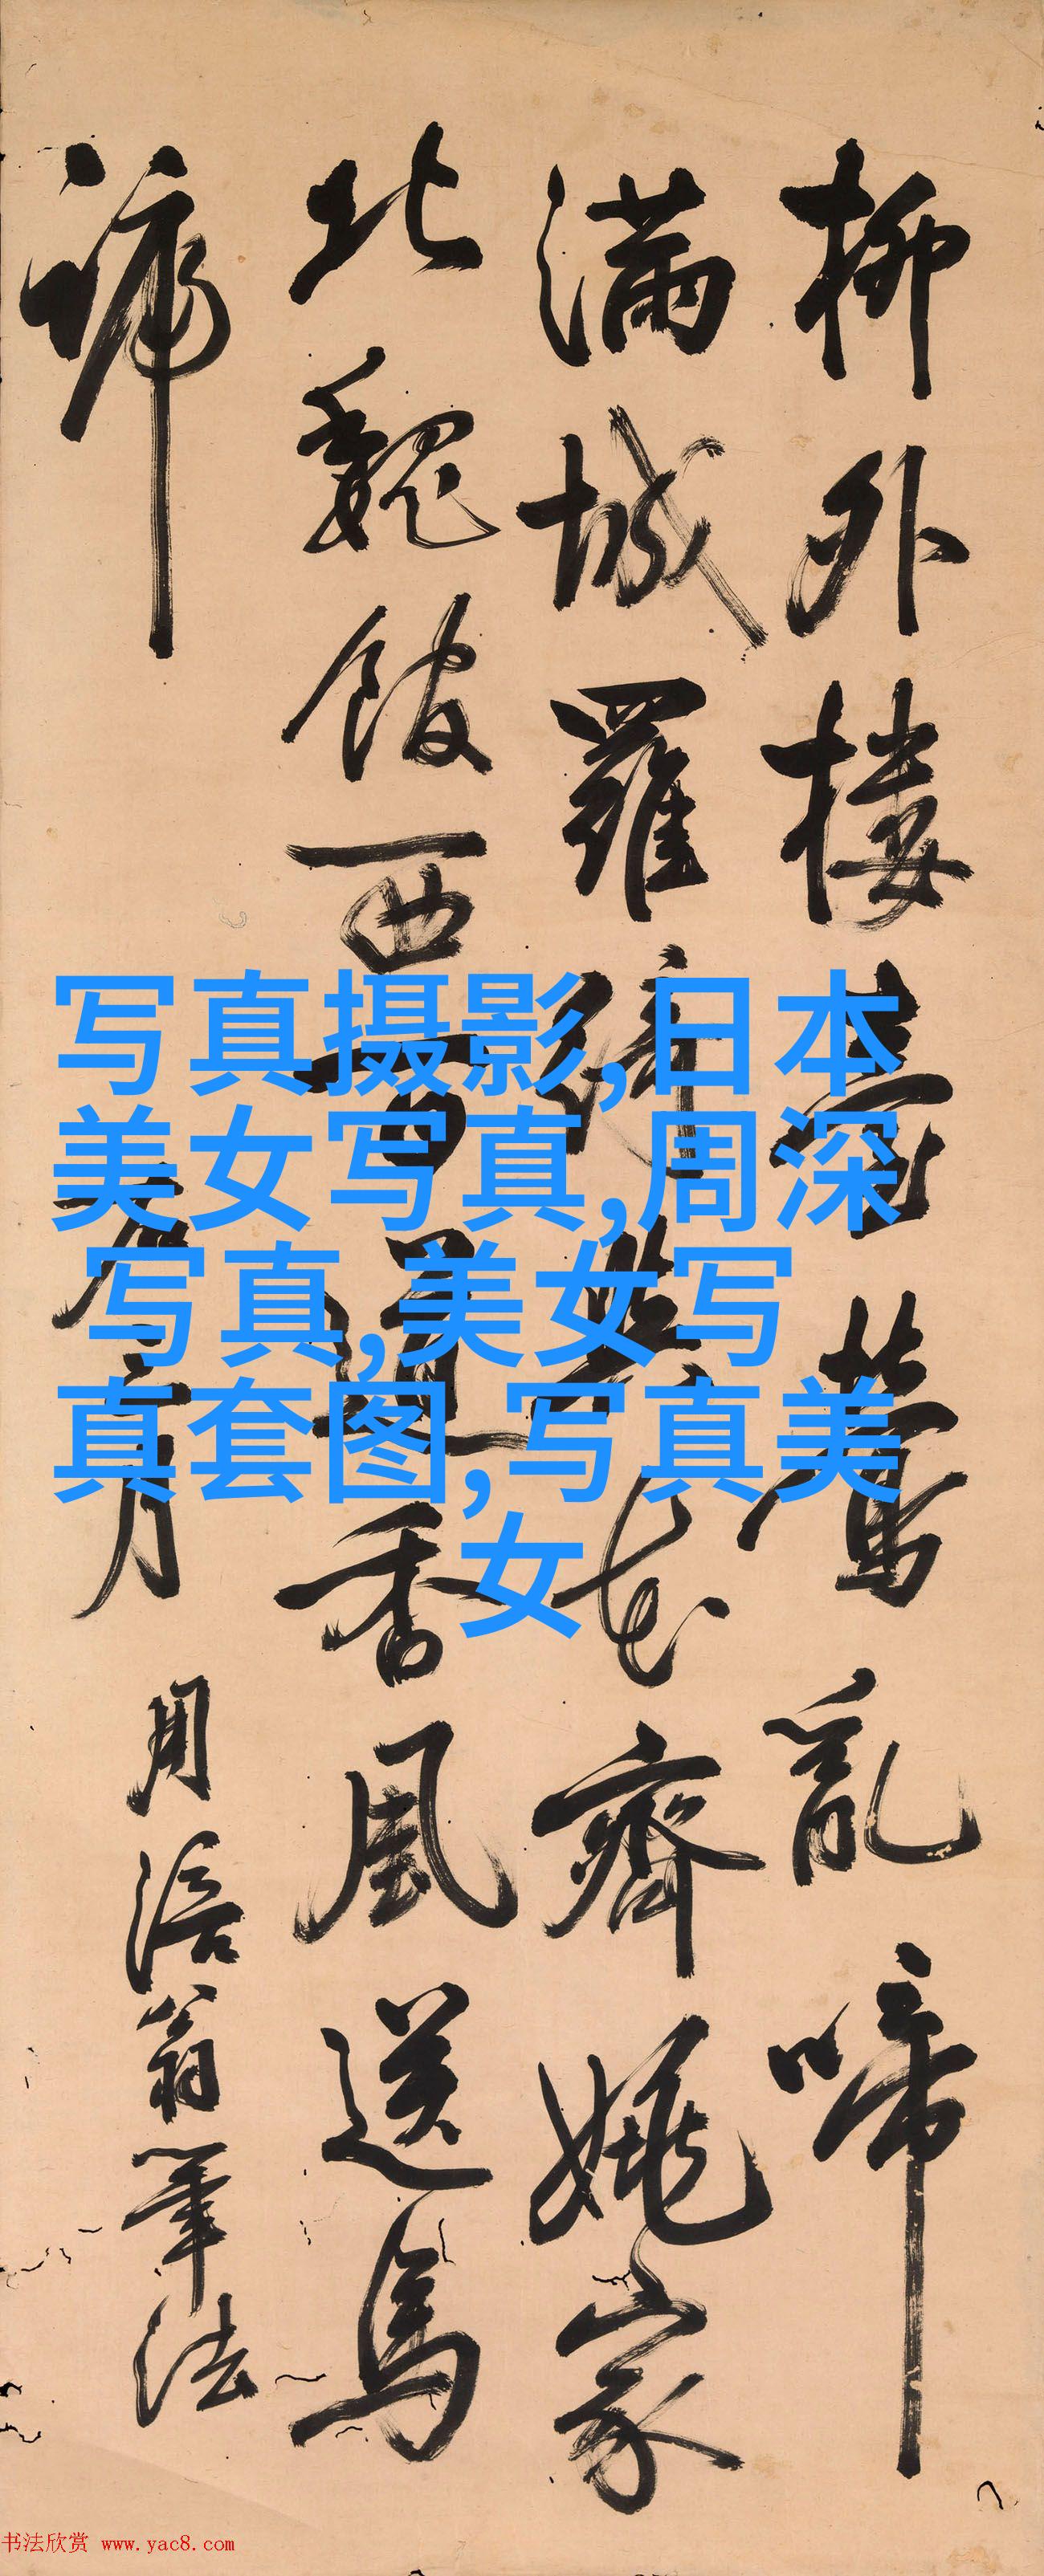 柳外楼臺鶯亂啼
滿城羅花齊姚家
北魏西道香風送馬
蹄
二月
用涪翁筆法
写真摄影,日本
美女写真,周深
写真,美女写
真套图,写真美
女
书法欣赏 www.yac8.com